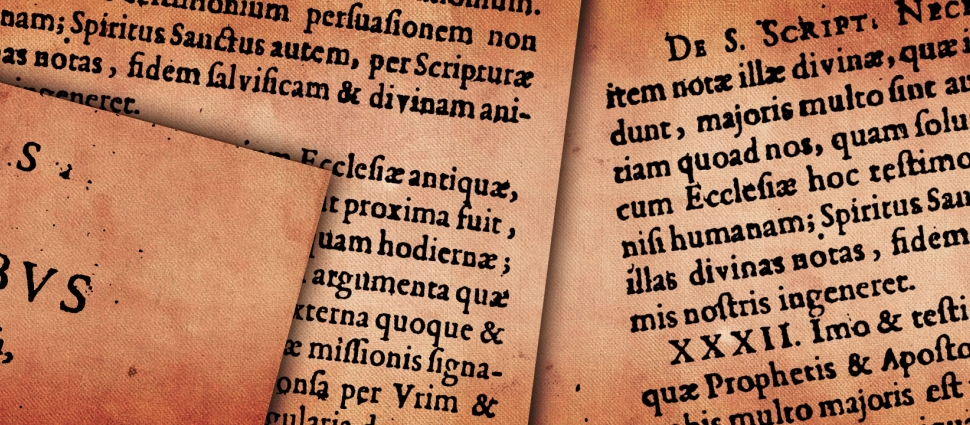 perſuaſionem non
nam; Spiritus Sanctus autem, per Scripturæ
as notas, fidem ſalvificam & divinam ani-
ingeneret.
Eccleſiæ antiquæ,
proxima fuit,
uam hodiernæ;
argumenta quæ
xterna quoque &
æ miſſionis ſigna-
onſa per Vrim &
S
BVS
DE S. SCRIPT. NECE
item notæ illæ divinæ, quæ
dunt, majoris multo ſint au
tiam quoad nos, quam ſolu
cum Eccleſiæ hoc teſtimo
niſi humanam; Spiritus San
illas divinas notas, fidem
mis noſtris ingeneret.
XXXII. Imo & teſti
quæ Prophetis & Apoſto
multo majoris eſt